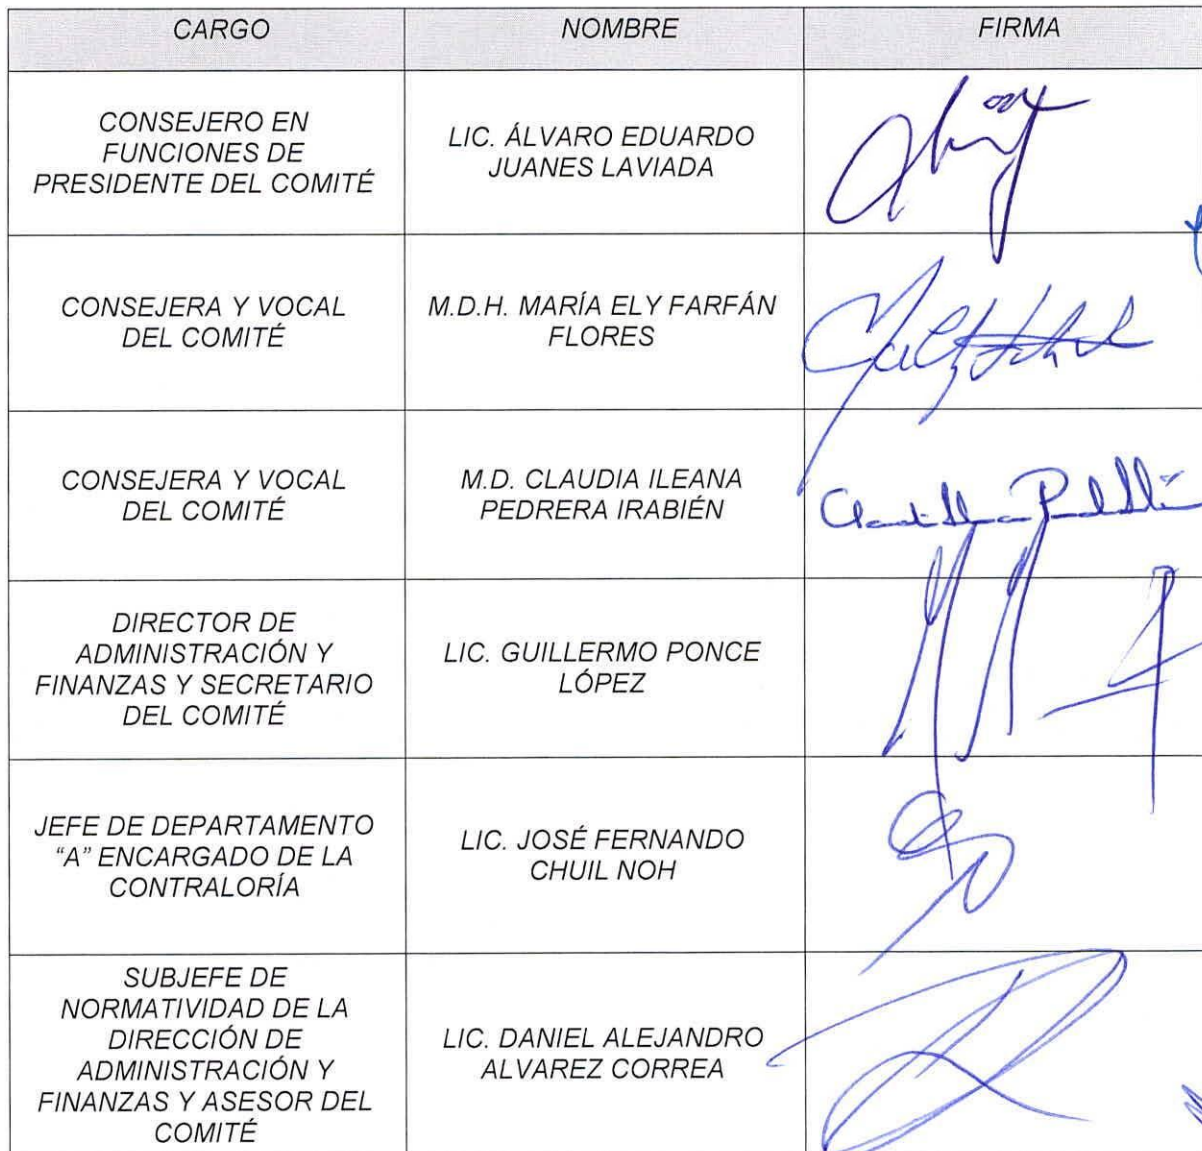 CARGO NOMBRE FIRMA
CONSEJERO EN
FUNCIONES DE
PRESIDENTE DEL COMITÉ
LIC. ÁLVARO EDUARDO
JUANES LAVIADA
CONSEJERA Y VOCAL
DEL COMITÉ
M.D.H. MARÍA ELY FARFÁN
FLORES
CONSEJERA Y VOCAL
DEL COMITÉ
M.D. CLAUDIA ILEANA
PEDRERA IRABIÉN
DIRECTOR DE
ADMINISTRACIÓN Y
FINANZAS Y SECRETARIO
DEL COMITÉ
LIC. GUILLERMO PONCE
LÓPEZ
JEFE DE DEPARTAMENTO
“A” ENCARGADO DE LA
CONTRALORÍA
LIC. JOSÉ FERNANDO
CHUIL NOH
SUBJEFE DE
NORMATIVIDAD DE LA
DIRECCIÓN DE
ADMINISTRACIÓN Y
FINANZAS Y ASESOR DEL
COMITÉ
LIC. DANIEL ALEJANDRO
ALVAREZ CORREA